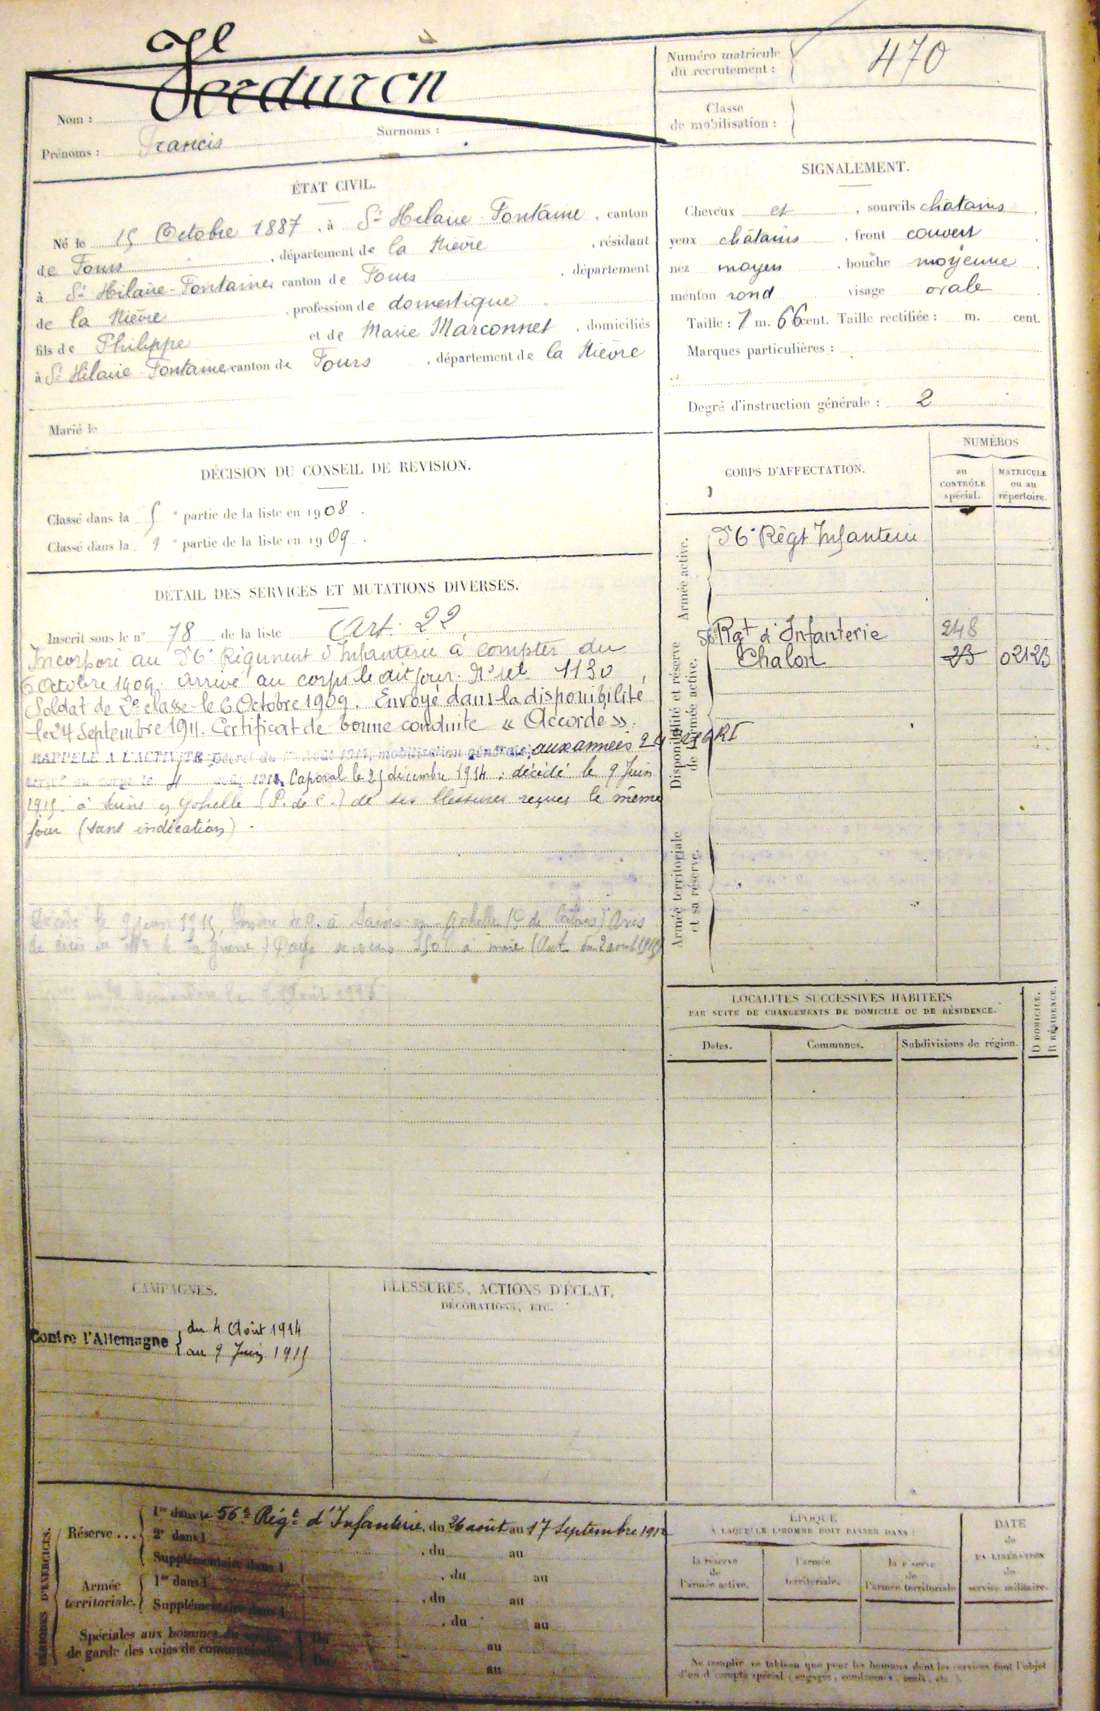 Nom : Verduron
Prénoms : Francis Surnoms :
Numéro matricule
du recrutement : 470
Classe
de mobilisation :
ÉTAT CIVIL.
Né le 15 Octobre 1887, à St Hilaire-Fontaine, canton
de Fours, département de la Nièvre, résidant
à St Hilaire-Fontaine, canton de Fours, département
de la Nièvre, profession de domestique
fils de Philippe et de Marie Marconnet, domiciliés
à St Hilaire-Fontaine canton de Fours, département de la Nièvre
Marié le
SIGNALEMENT.
Cheveux et, sourcils châtains,
yeux châtains, front couvert,
nez moyen, bouche moyenne,
menton rond visage ovale
Taille : 1 m. 66 cent. Taille rectifiée : m. cent.
Marques particulières :
Degré d'instruction générale : 2
DÉCISION DU CONSEIL DE REVISION.
Classé dans la 5e partie de la liste en 1908.
Classé dans la 1e partie de la liste en 1909.
CORPS D'AFFECTATION.
NUMÉROS
au
CONTRÔLE
spécial.
MATRICULE
ou au
répertoire.
Armée active.
56e Régt Infanterie
Disponibilité et réserve
de l'armée active.
56 Rgt d'Infanterie 248
Chalon 23 02123
Armée territoriale
et sa réserve.
DÉTAIL DES SERVICES ET MUTATIONS DIVERSES.
Inscrit sous le n° 78 de la liste Art. 22
Incorporé au 56e Régiment d'Infanterie à compter du
6 Octobre 1909. Arrivé au corps le dit jour. No 1130
Soldat de 2e classe le 6 Octobre 1909. Envoyé dans la disponibilité
le 24 Septembre 1911. Certificat de bonne conduite « Accordé ».
RAPPELÉ A L'ACTIVITÉ Décret du 1er Août 1914, mobilisation générale, aux armées
Caporal le 25 décembre 1914 ; décédé le 9 Juin
1915 à Sains en Gohelle (P. de C.) de ses blessures reçues le même
jour (sans indication).
Décédé le 9 juin 1915 à Sains en Gohelle Avis
LOCALITÉS SUCCESSIVES HABITÉES
PAR SUITE DE CHANGEMENTS DE DOMICILE OU DE RÉSIDENCE.
Dates. Communes. Subdivisions de région.
D DOMICILE.
R RÉSIDENCE.
CAMPAGNES.
Contre l'Allemagne du 4 Août 1914
au 9 Juin 1915
BLESSURES, ACTIONS D'ÉCLAT,
DÉCORATIONS, ETC.
PÉRIODES D'EXERCICES.
Réserve... 1re dans le 56e Régt d'Infanterie, du 26 août au 17 Septembre 1912
2e dans l , du au
Supplémentaire dans l
Armée
territoriale. 1re dans l , du au
Supplémentaire dans l , du au
Spéciales aux hommes du service
de garde des voies de communication Du au
Du au
ÉPOQUE
A LAQUELLE L'HOMME DOIT PASSER DANS :
la réserve
de
l'armée active.
l'armée
territoriale.
la réserve
de
l'armée territoriale
DATE
de
LA LIBÉRATION
du
service militaire.
Ne remplir ce tableau que pour les hommes dont les services font l'objet
d'un compte spécial (engagés, condamnés, omis, etc.).